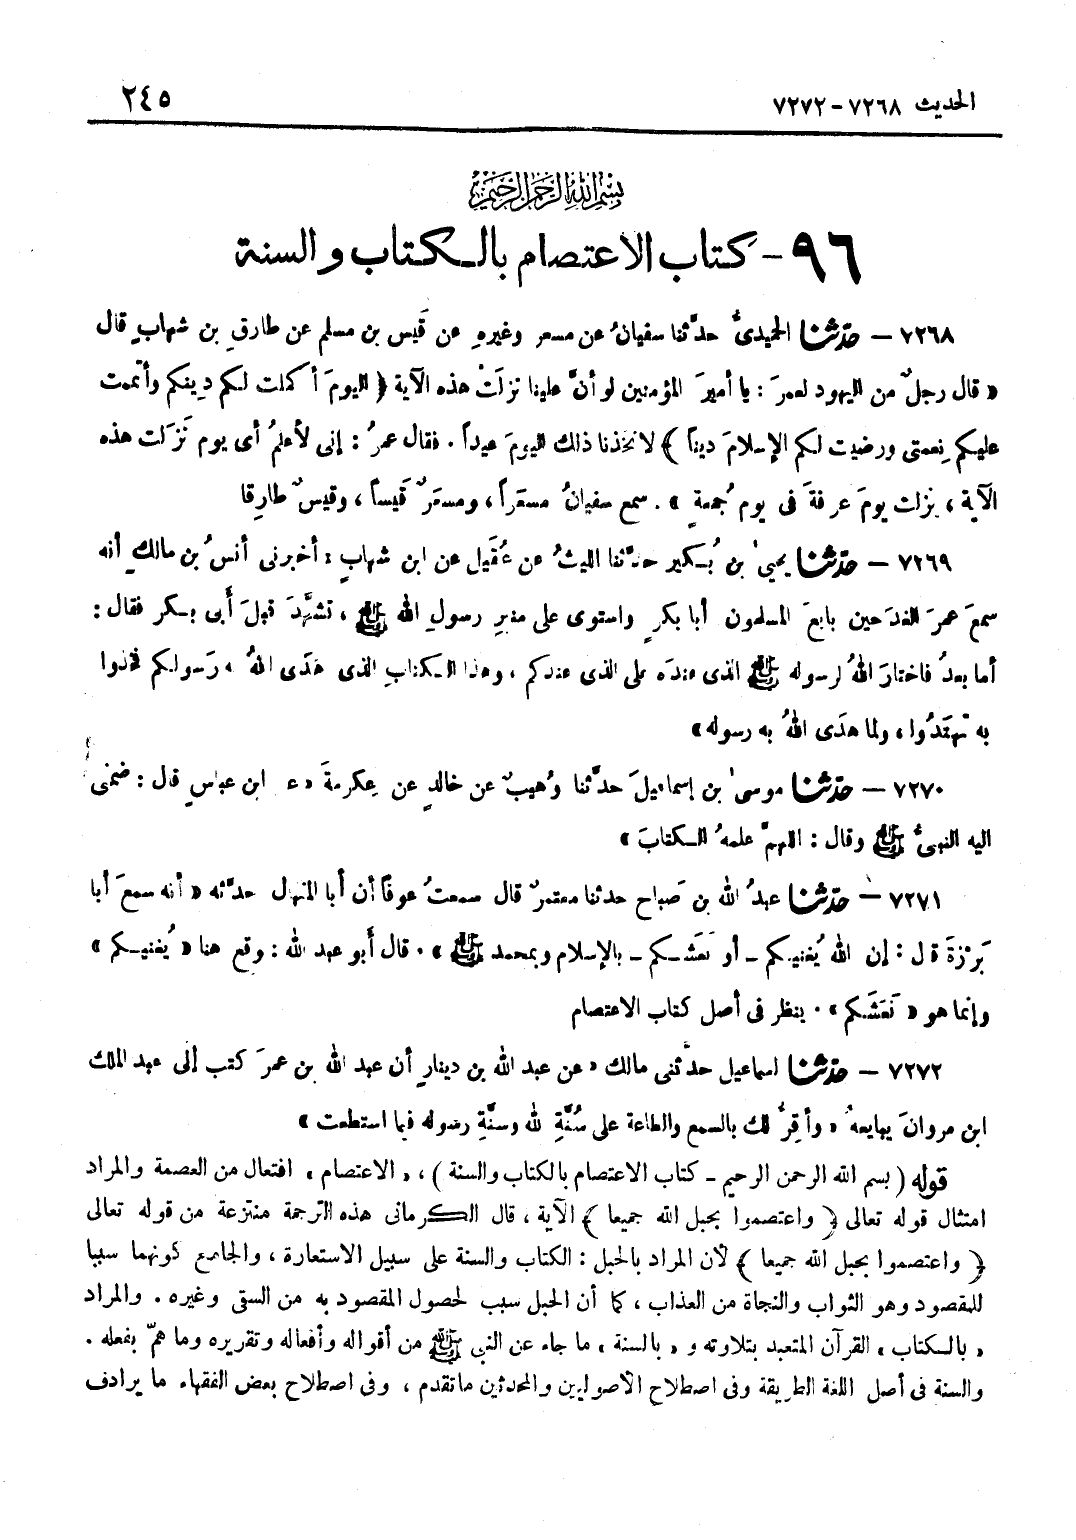 الحديث ٧٢٦٨ - ٧٢٧٢
٢٤٥
بسم الله الرحمن الرحيم
٩٦ - كتاب الاعتصام بالكتاب والسنة
٧٢٦٨ - حدثنا الحميدىُّ حدَّثنا سفيانُ عن مسعر وغيرهِ عن قَيس بن مسلم عن طارقِ بن شهابٍ قال
« قال رجلٌ من اليهود لعمرَ : يا أميرَ المؤمنين لو أنَّ علينا نزلَتْ هذه الآية ﴿ اليومَ أكملت لكم دِينكم وأتممت
عليكم نِعمتى ورضيت لكم الإسلامَ ديناً ﴾ لاتخذنا ذلك اليومَ عيداً . فقال عمرُ : إنى لأعلمُ أى يوم نَزَلت هذه
الآية ، نزلت يومَ عرفةَ فى يوم جُمعةٍ » . سمع سفيانُ مسعَراً ، ومسعَرٌ قَيساً ، وقيسٌ طارقا
٧٢٦٩ - حدثنا يحيىٰ بن بُكير حدَّثنا الليثُ عن عُقَيل عن ابن شهابٍ « أخبرنى أنسُ بن مالكٍ أنه
سمعَ عمرَ الغدَ حين بايعَ المسلمون أبا بكرٍ واستوى على منبرِ رسولِ الله ﷺ ، تشهَّدَ قبلَ أبى بكر فقال :
أما بعدُ فاختارَ اللهُ لرسوله ﷺ الذى عندَه على الذى عندكم ، وهذا الكتابِ الذى هَدَى اللهُ به رَسولكم فخذوا
به تهتَدُوا ، ولما هدَى اللهُ به رسوله »
٧٢٧٠ - حدثنا موسىٰ بن إسماعيلَ حدَّثنا وُهيبٌ عن خالدٍ عن عِكرمةَ ابن عباسٍ قال : ضمنى
اليه النبىُّ ﷺ وقال : اللهمَّ علمهُ الكتابَ »
٧٢٧١ - حدثنا عبدُ الله بن صَباح حدثنا معتمرٌ قال سمعتُ عوفاً أن أبا المنهال حدَّثه « أنه سمعَ أبا
بَرْزةَ قال : إن اللهَ يُغنيكم - أو نَعَشكم - بالإسلام وبمحمد ﷺ » . قال أبو عبد الله : وقع هنا « يُغنيكم »
وإنما هو « نَعَشَكم » . ينظر فى أصل كتاب الاعتصام
٧٢٧٢ - حدثنا اسماعيل حدَّثنى مالك « عن عبد الله بن دينارٍ أن عبد الله بن عمرَ كتب إلى عبد الملك
ابن مروانَ يبايعهُ « وأقِرُّ لك بالسمع والطاعة على سُنَّةِ الله وسنَّةِ رسوله فيما استطعت »
قوله ( بسم الله الرحمن الرحيم - كتاب الاعتصام بالكتاب والسنة ) ، « الاعتصام » افتعال من العصمة والمراد
امتثال قوله تعالى ﴿ واعتصموا بحبل الله جميعا ﴾ الآية ، قال الكرمانى هذه الترجمة منتزعة من قوله تعالى
﴿ واعتصموا بحبل الله جميعا ﴾ لأن المراد بالحبل : الكتاب والسنة على سبيل الاستعارة ، والجامع كونهما سببا
للمقصود وهو الثواب والنجاة من العذاب ، كما أن الحبل سبب لحصول المقصود به من السقى وغيره . والمراد
« بالكتاب » القرآن المتعبد بتلاوته و « بالسنة » ما جاء عن النبى ﷺ من أقواله وأفعاله وتقريره وما همّ بفعله .
والسنة فى أصل اللغة الطريقة وفى اصطلاح الأصوليين والمحدثين ماتقدم ، وفى اصطلاح بعض الفقهاء ما يرادف